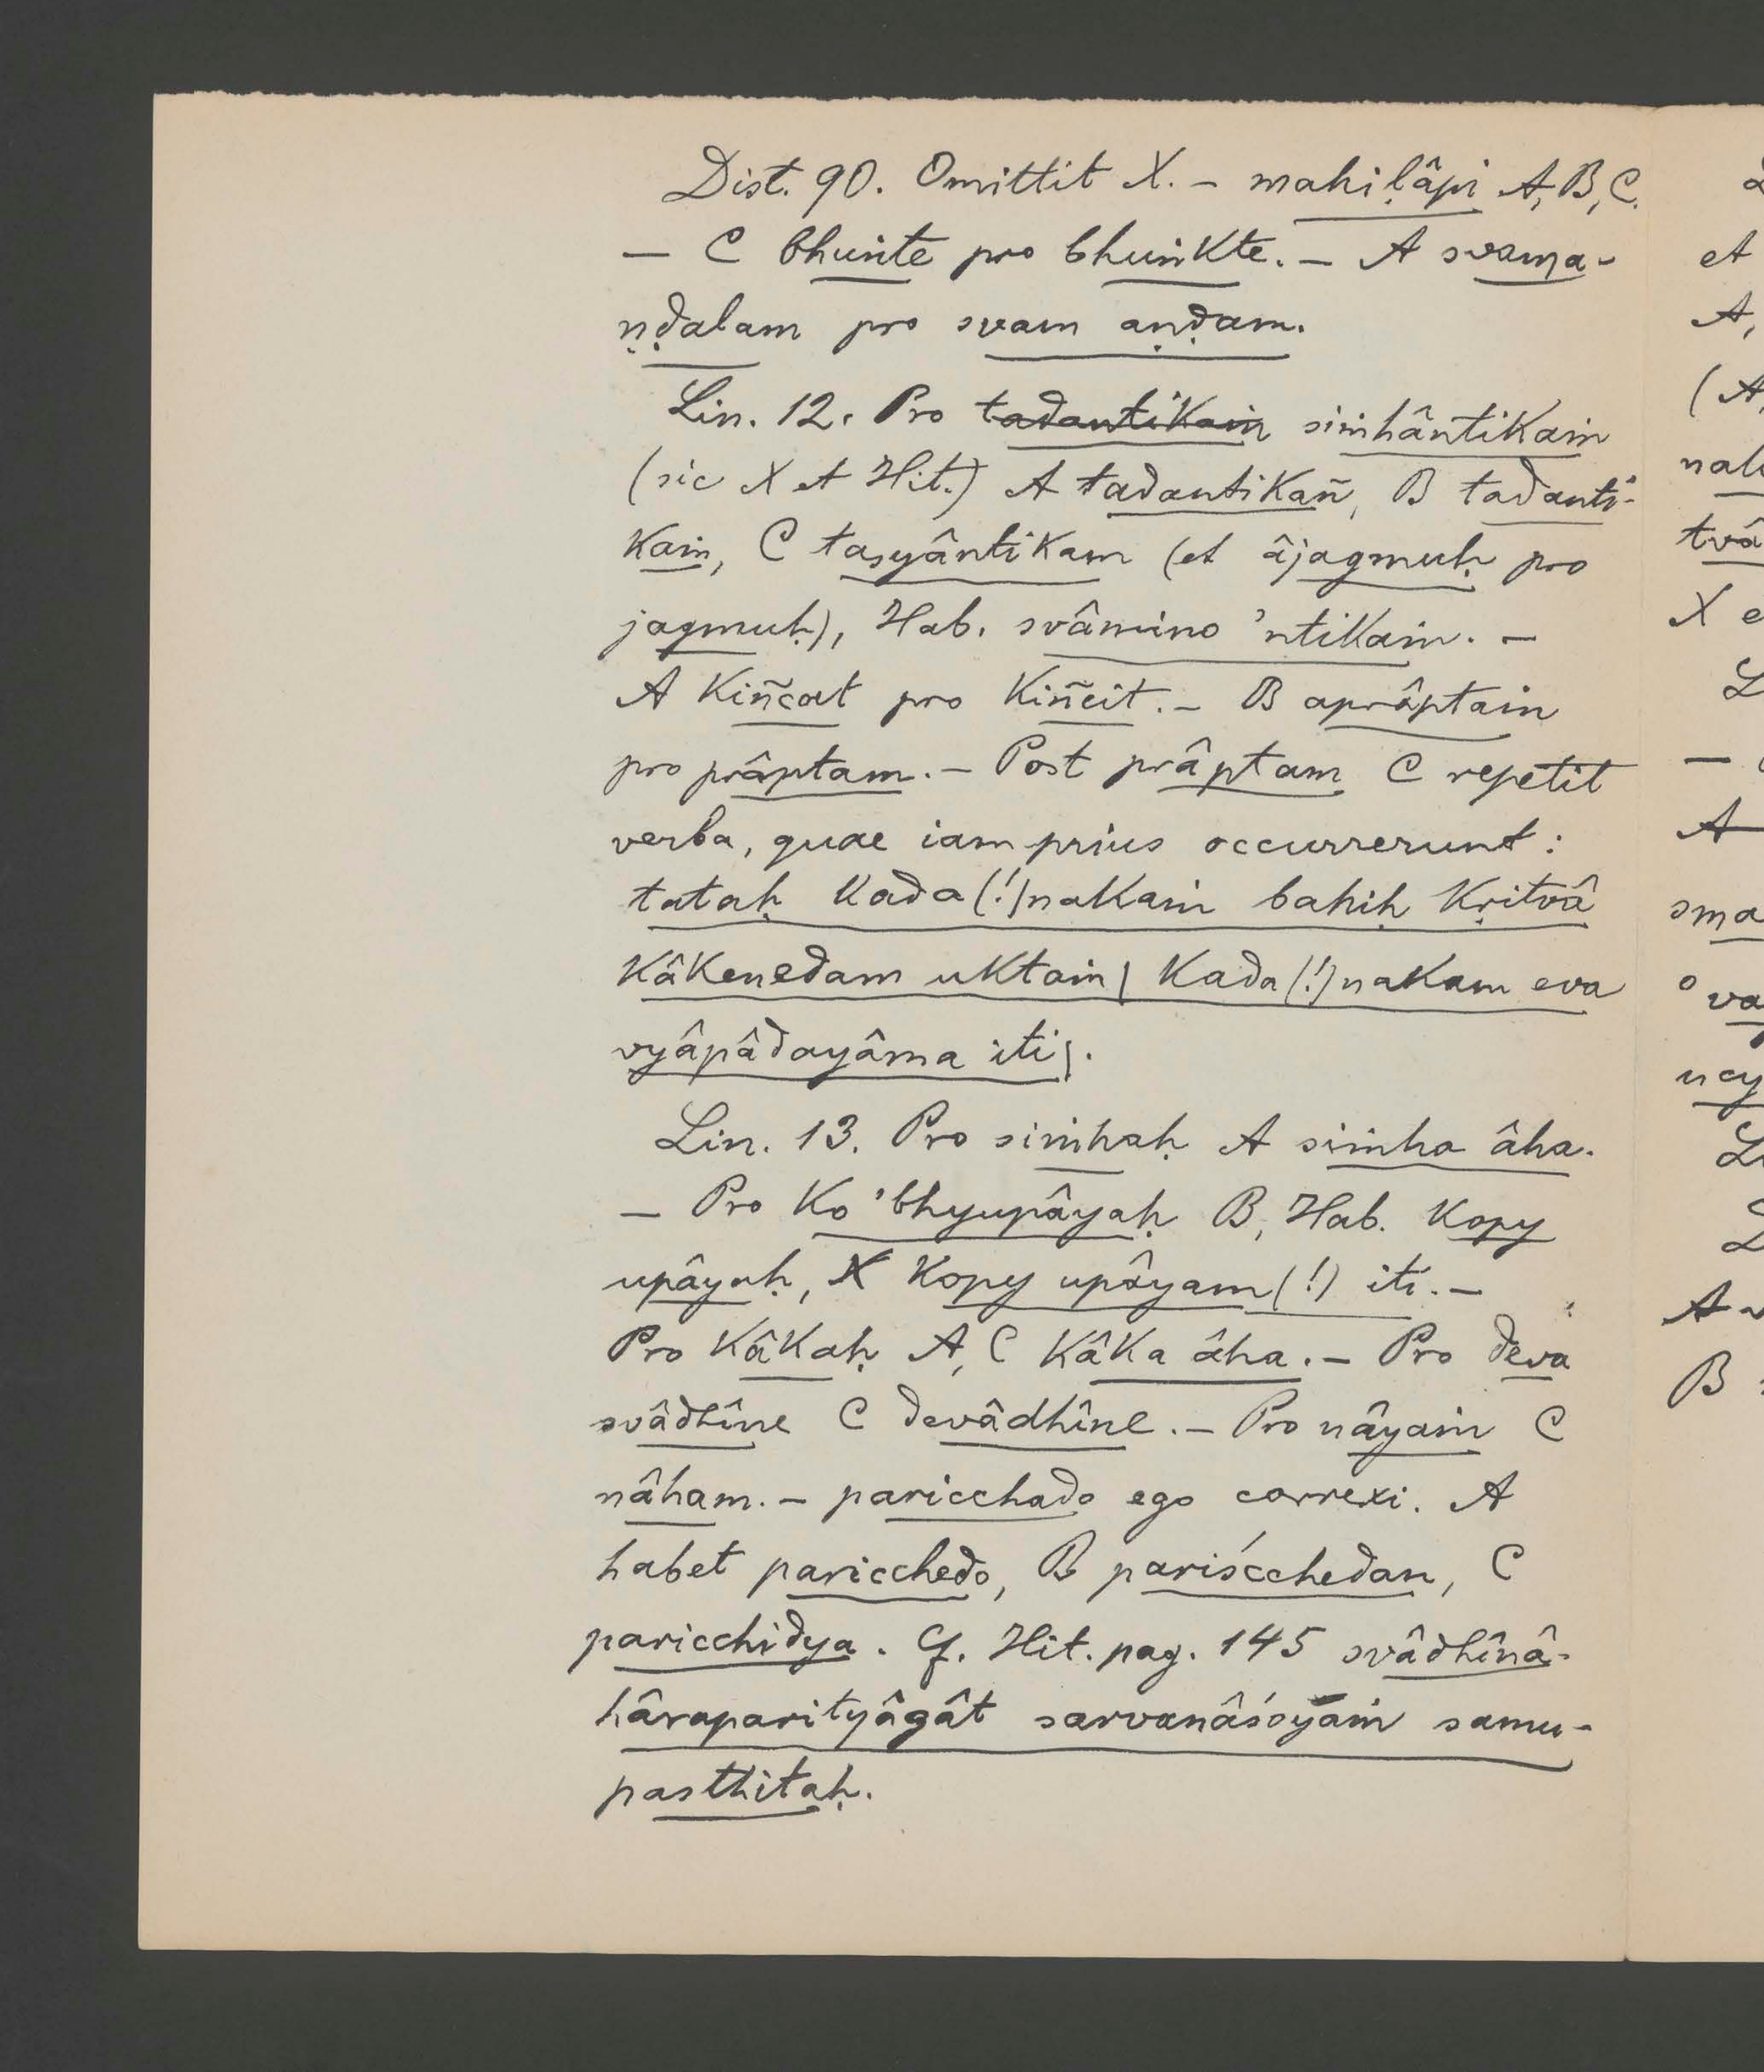 Dist. 90. Omittit X. – mahiḷâpi A, B, C.
– C bhuṅte pro bhuṅkte. – A svama-
ṇḍalam pro svam aṇḍam.
Lin. 12. Pro tadantikaṁ siṁhântikaṁ
(sic X et Hit.) A tadantikañ, B tadanti-
kaṁ, C tasyântikam (et âjagmuḥ pro
jagmuḥ), Hab. svâmino 'ntikaṁ. –
A kiñcat pro kiñcit. – B aprâptaṁ
pro prâptam. – Post prâptam C repetit
verba, quae iam prius occurrerunt:
tataḥ kada(!)nakaṁ bahiḥ kṛitvâ
kâkenedam uktaṁ| kada(!)nakam eva
vyâpâdayâma iti|.
Lin. 13. Pro siṁhaḥ A siṁha âha.
– Pro ko 'bhyupâyaḥ B, Hab. kopy
upâyaḥ, X kopy upâyam(!) iti. –
Pro kâkaḥ A, C kâka âha. – Pro deva
svâdhîne C devâdhîne. – Pro nâyaṁ C
nâham. – paricchado ego correxi. A
habet paricchedo, B pariścchedan, C
paricchidya. Cf. Hit. pag. 145 svâdhînâ-
hâraparityâgât sarvanâśoyaṁ samu-
pasthitaḥ.
et
A,
(A,
tvâ
X e
–
A
sma
°va
ucy
A
B